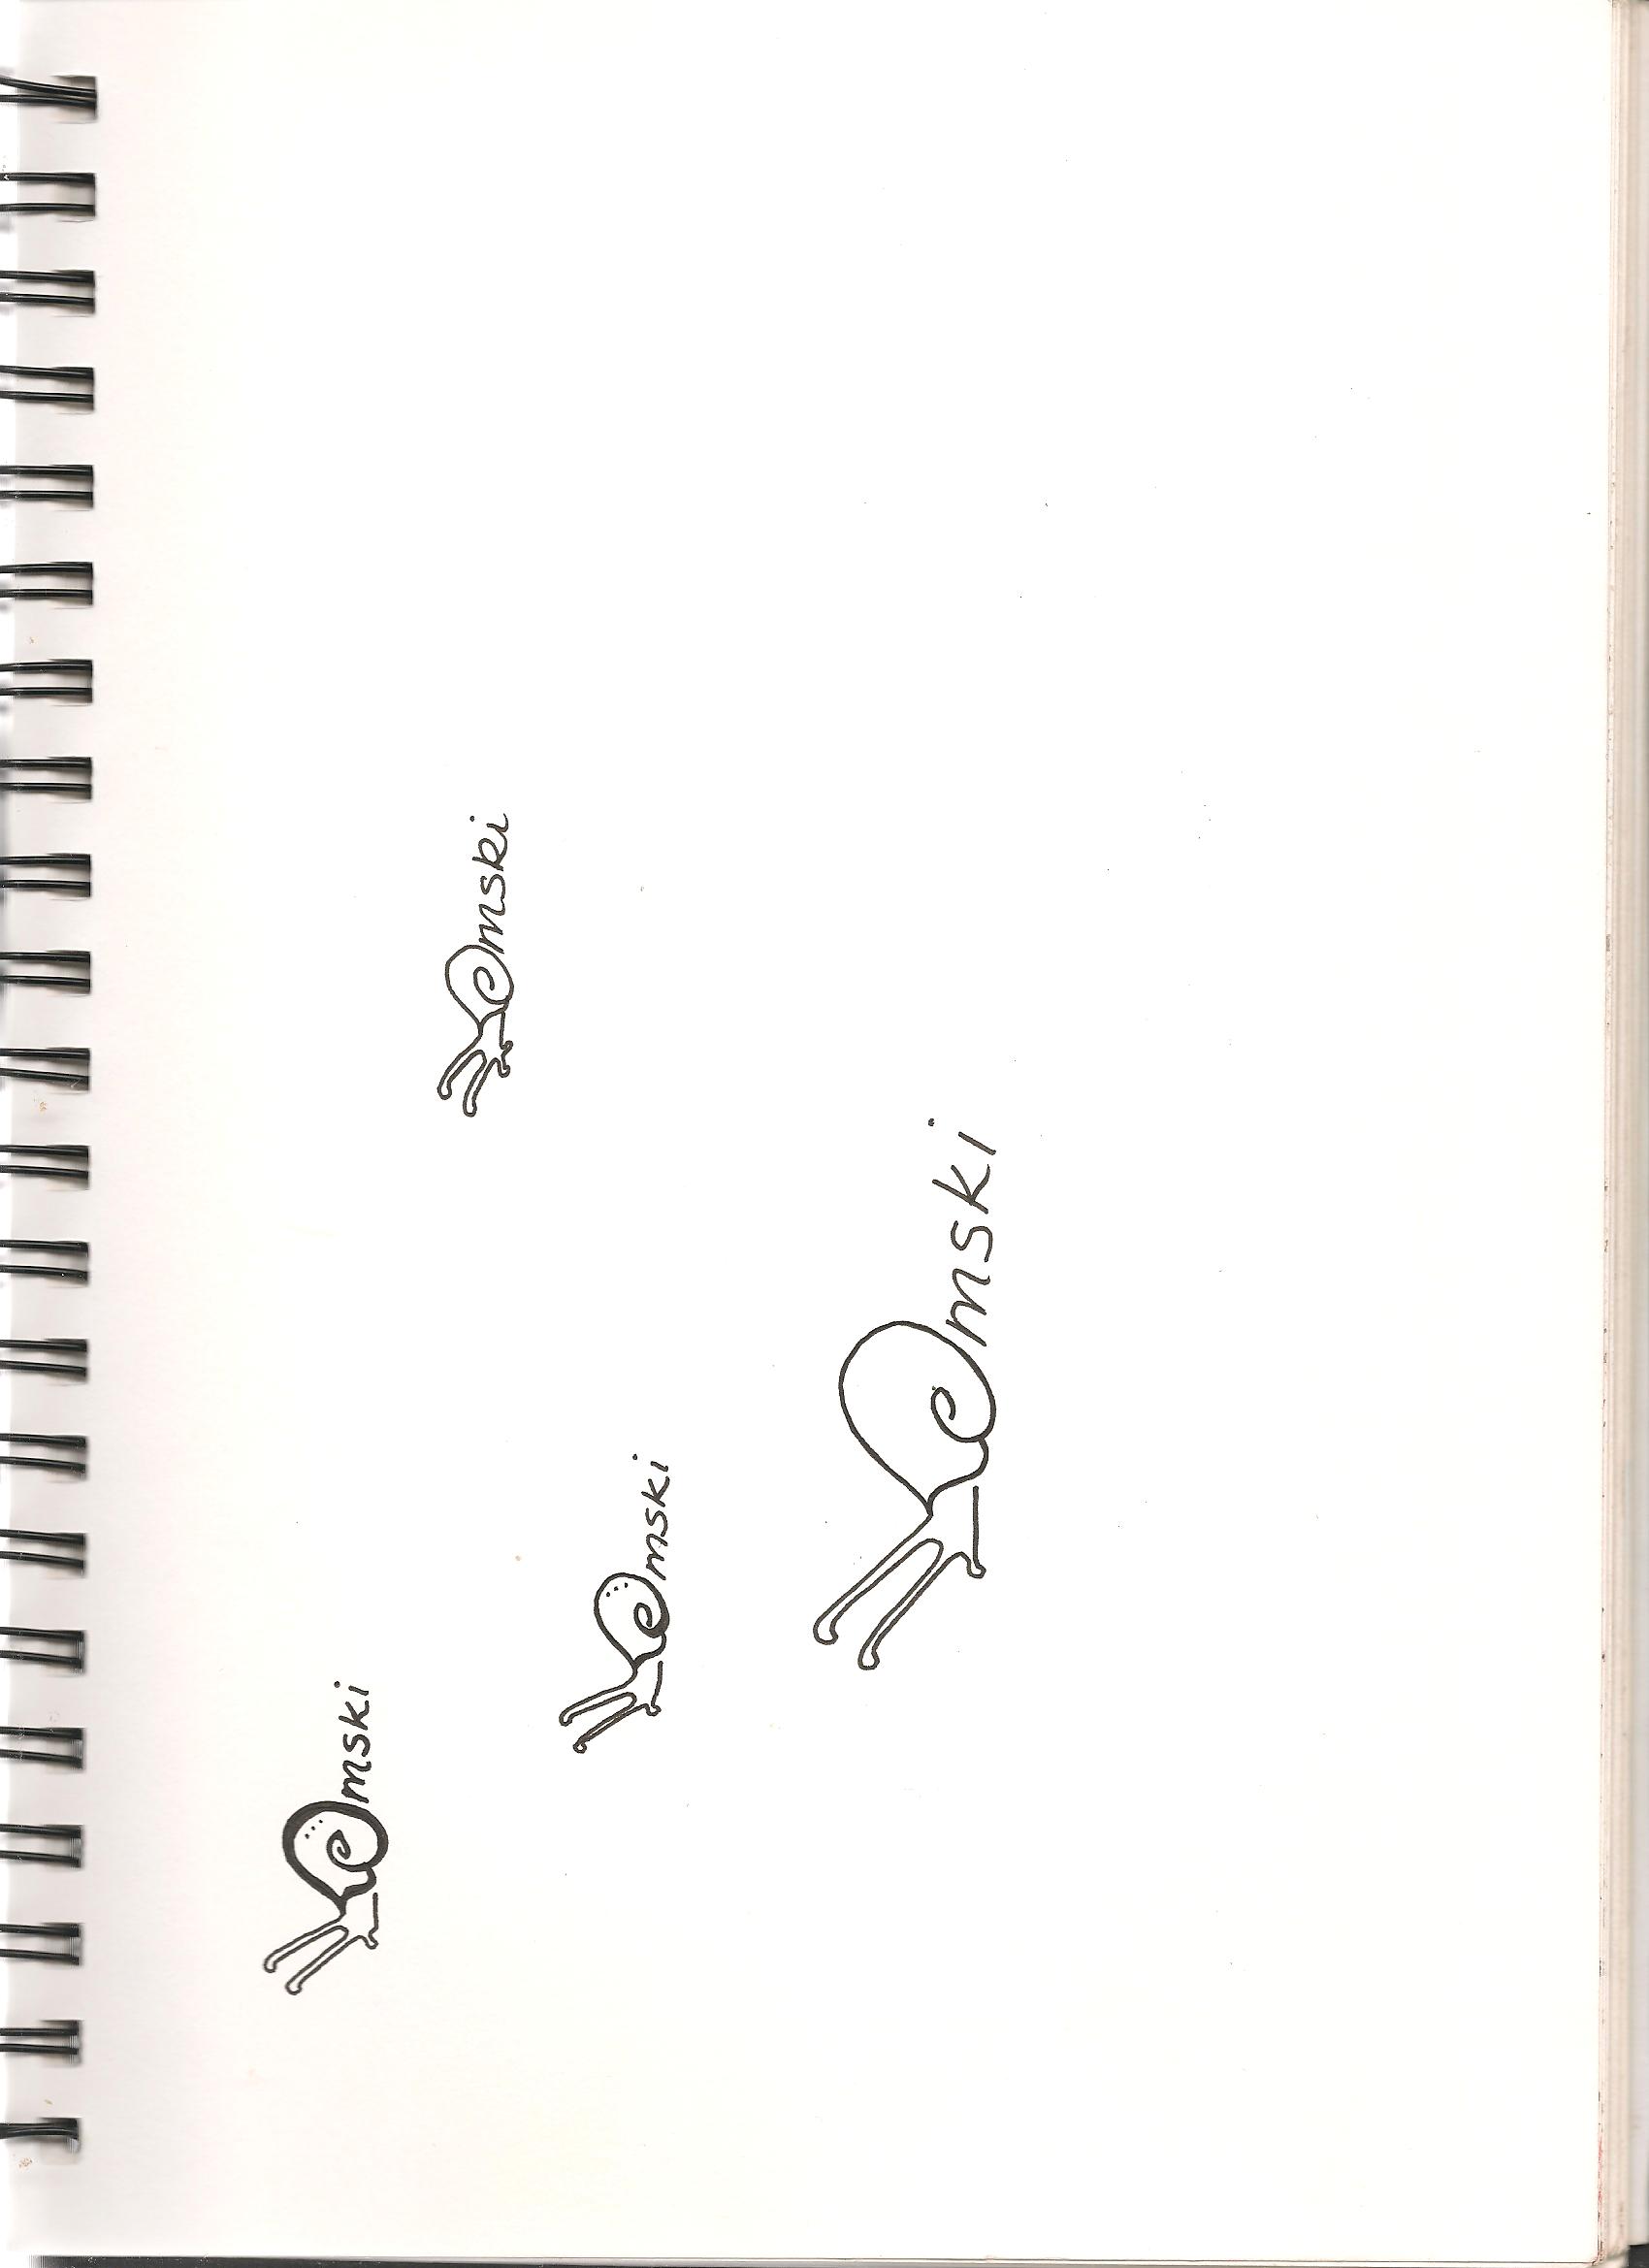 emski
emski
emski
emski